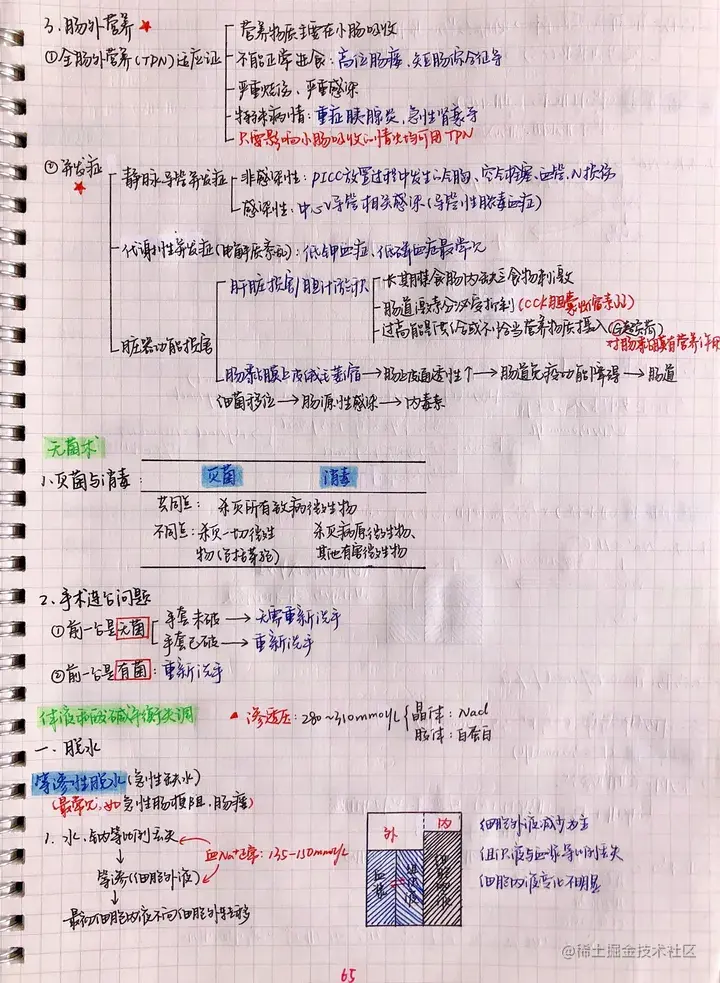 3.肠外营养 ★
营养物质主要在小肠吸收
①全肠外营养(TPN)适应证
不能正常进食：高位肠瘘、短肠综合征等
严重烧伤、严重感染
特殊病情：重症胰腺炎、急性肾衰等
只要影响小肠吸收的情况均可用TPN
②并发症 ★
静脉导管并发症
非感染性：PICC放置过程中发生的气胸、空气栓塞、血管、N损伤
感染性：中心V导管相关感染(导管性脓毒血症)
代谢性并发症(电解质紊乱)：低钾血症、低磷血症最常见
脏器功能损害
肝脏损害/胆汁淤积
长期禁食肠内缺乏食物刺激
肠道激素分泌受抑制(CCK胆囊收缩素↓)
过高能量供给或不恰当营养物质摄入
对肠黏膜有营养作用
肠黏膜上皮绒毛萎缩→肠上皮通透性↑→肠道免疫功能障碍→肠道
细菌移位→肠源性感染→内毒素
无菌术
1.灭菌与消毒：
灭菌 消毒
共同点：杀灭所有致病微生物
不同点：杀灭一切微生 杀灭病原微生物、
物(包括芽孢) 其他有害微生物
2.手术连台问题
①前一台是无菌
手套未破→无需重新洗手
手套已破→重新洗手
②前一台是有菌：重新洗手
体液和酸碱平衡失调
▲渗透压：280~310mmol/L
晶体：Nacl
胶体：白蛋白
一、脱水
等渗性脱水(急性缺水)
(最常见，如急性肠梗阻、肠瘘)
1.水、钠等比例丢失
血Na+正常：135-150mmol/L
↓
等渗(细胞外液)
↓
最初细胞内液不向细胞外转移
外 内
血浆 组织液 细胞内液
细胞外液减少为主
组织液与血浆等比例丢失
细胞内液变化不明显
65
@稀土掘金技术社区